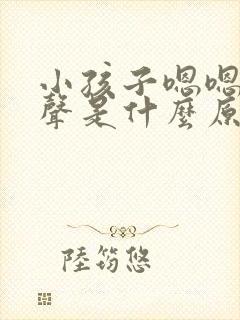 小孩子嗯嗯
聲是什麼原
陸筠悠